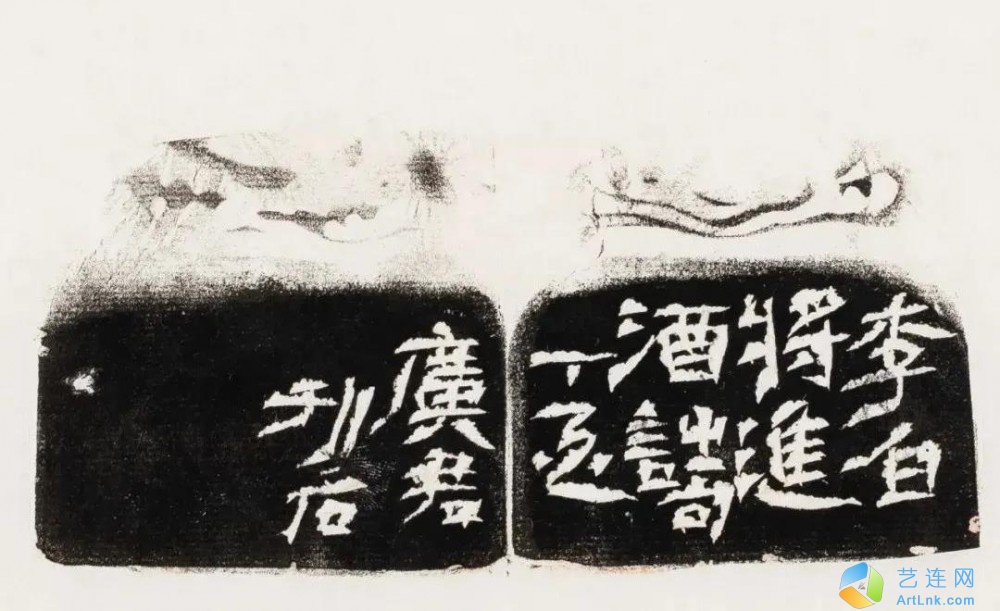 李白
將進
酒詩
丁亥
廣君
刊石
艺连网
ArtLnk.com